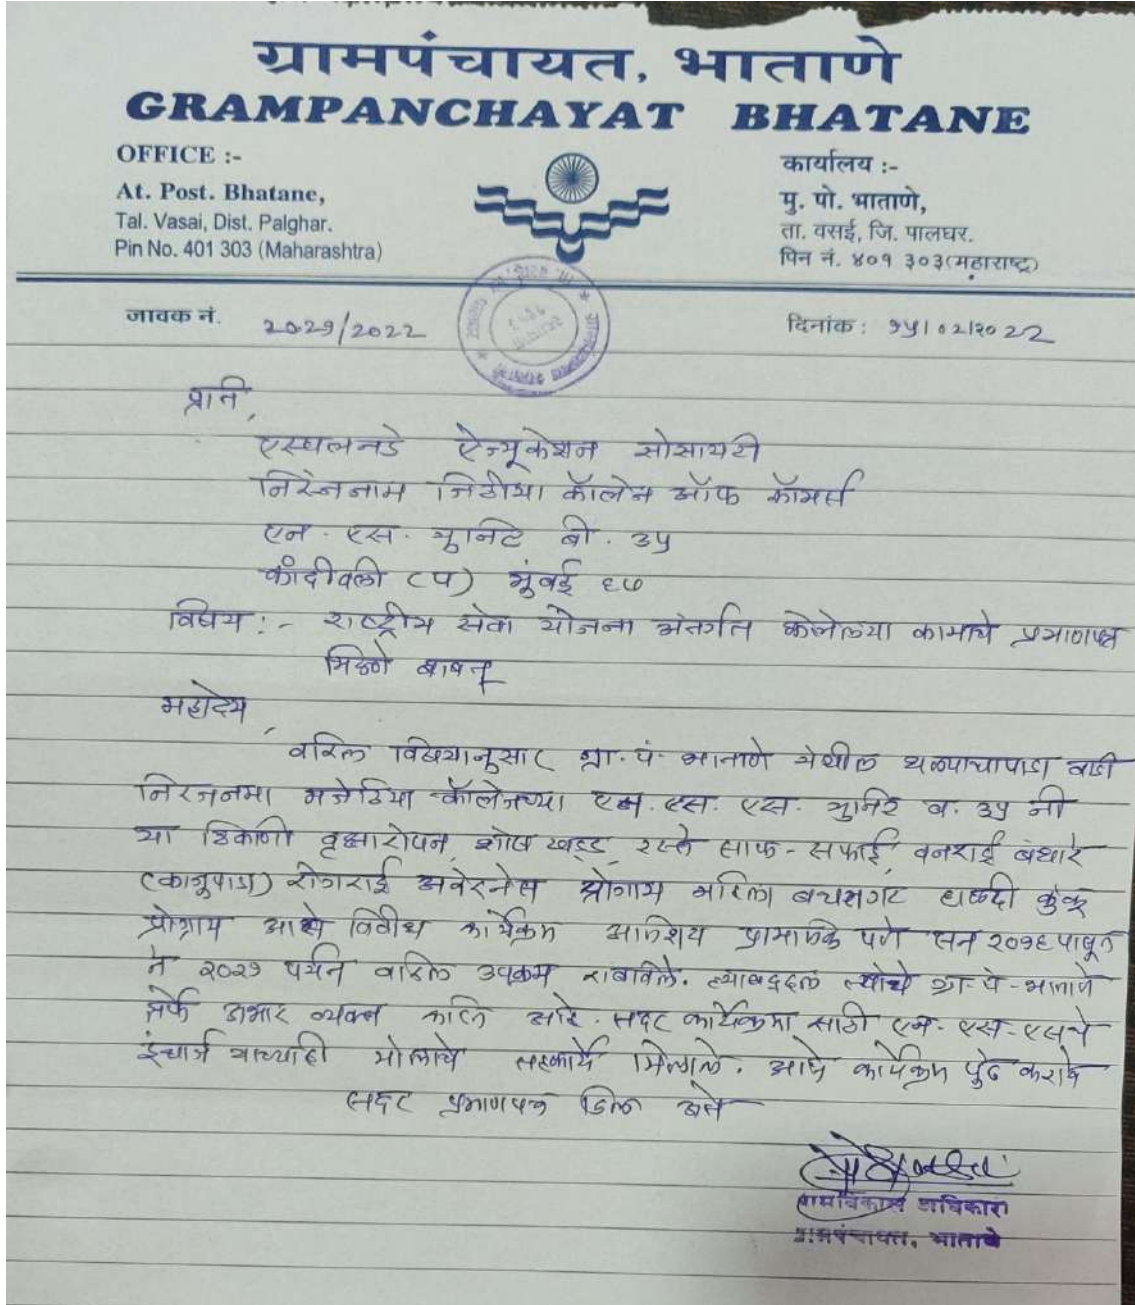 ग्रामपंचायत, भाताणे
GRAMPANCHAYAT BHATANE
OFFICE :-
At. Post. Bhatane,
Tal. Vasai, Dist. Palghar.
Pin No. 401 303 (Maharashtra)
कार्यालय :-
मु. पो. भाताणे,
ता. वसई, जि. पालघर.
पिन नं. ४०१ ३०३(महाराष्ट्र)
जावक नं. २०२१/२०२२
दिनांक : १५/०२/२०२२
प्रति,
सोसायटी
कॉलेज ऑफ कॉमर्स
एन. एस. युनिट बी. ३५
कांदीवली (प) मुंबई ६७
विषय :- राष्ट्रीय सेवा योजना अंतर्गत केलेल्या कामाचे प्रमाणपत्र
मिळणे बाबत
महोदय,
वरिल विषयानुसार ग्रा. पं. भाताणे येथील
कॉलेजच्या एन. एस. एस. युनिट ब. ३५ नी
या ठिकाणी वृक्षारोपन, शोष खड्डे, रस्ते साफ-सफाई, वनराई बंधारे
(काजुपाडा) अवेरनेस प्रोग्राम महिला बचतगट हळदी कुंकू
प्रोग्राम असे विवीध कार्यक्रम पणे सन २०१६ पासून
ते २०२१ पर्यंत वरिल उपक्रम राबविले. त्याबद्दल त्यांचे ग्रा. पं. भाताणे
तर्फे आभार व्यक्त करित आहे. सदर कार्यक्रमा साठी एन. एस. एसचे
इंचार्ज याच्याही मोलाचे सहकार्य मिळाले. असे कार्यक्रम पुढे करावे
सदर प्रमाणपत्र दिले असे
ग्रामविकास अधिकारी
ग्रामपंचायत, भाताणे